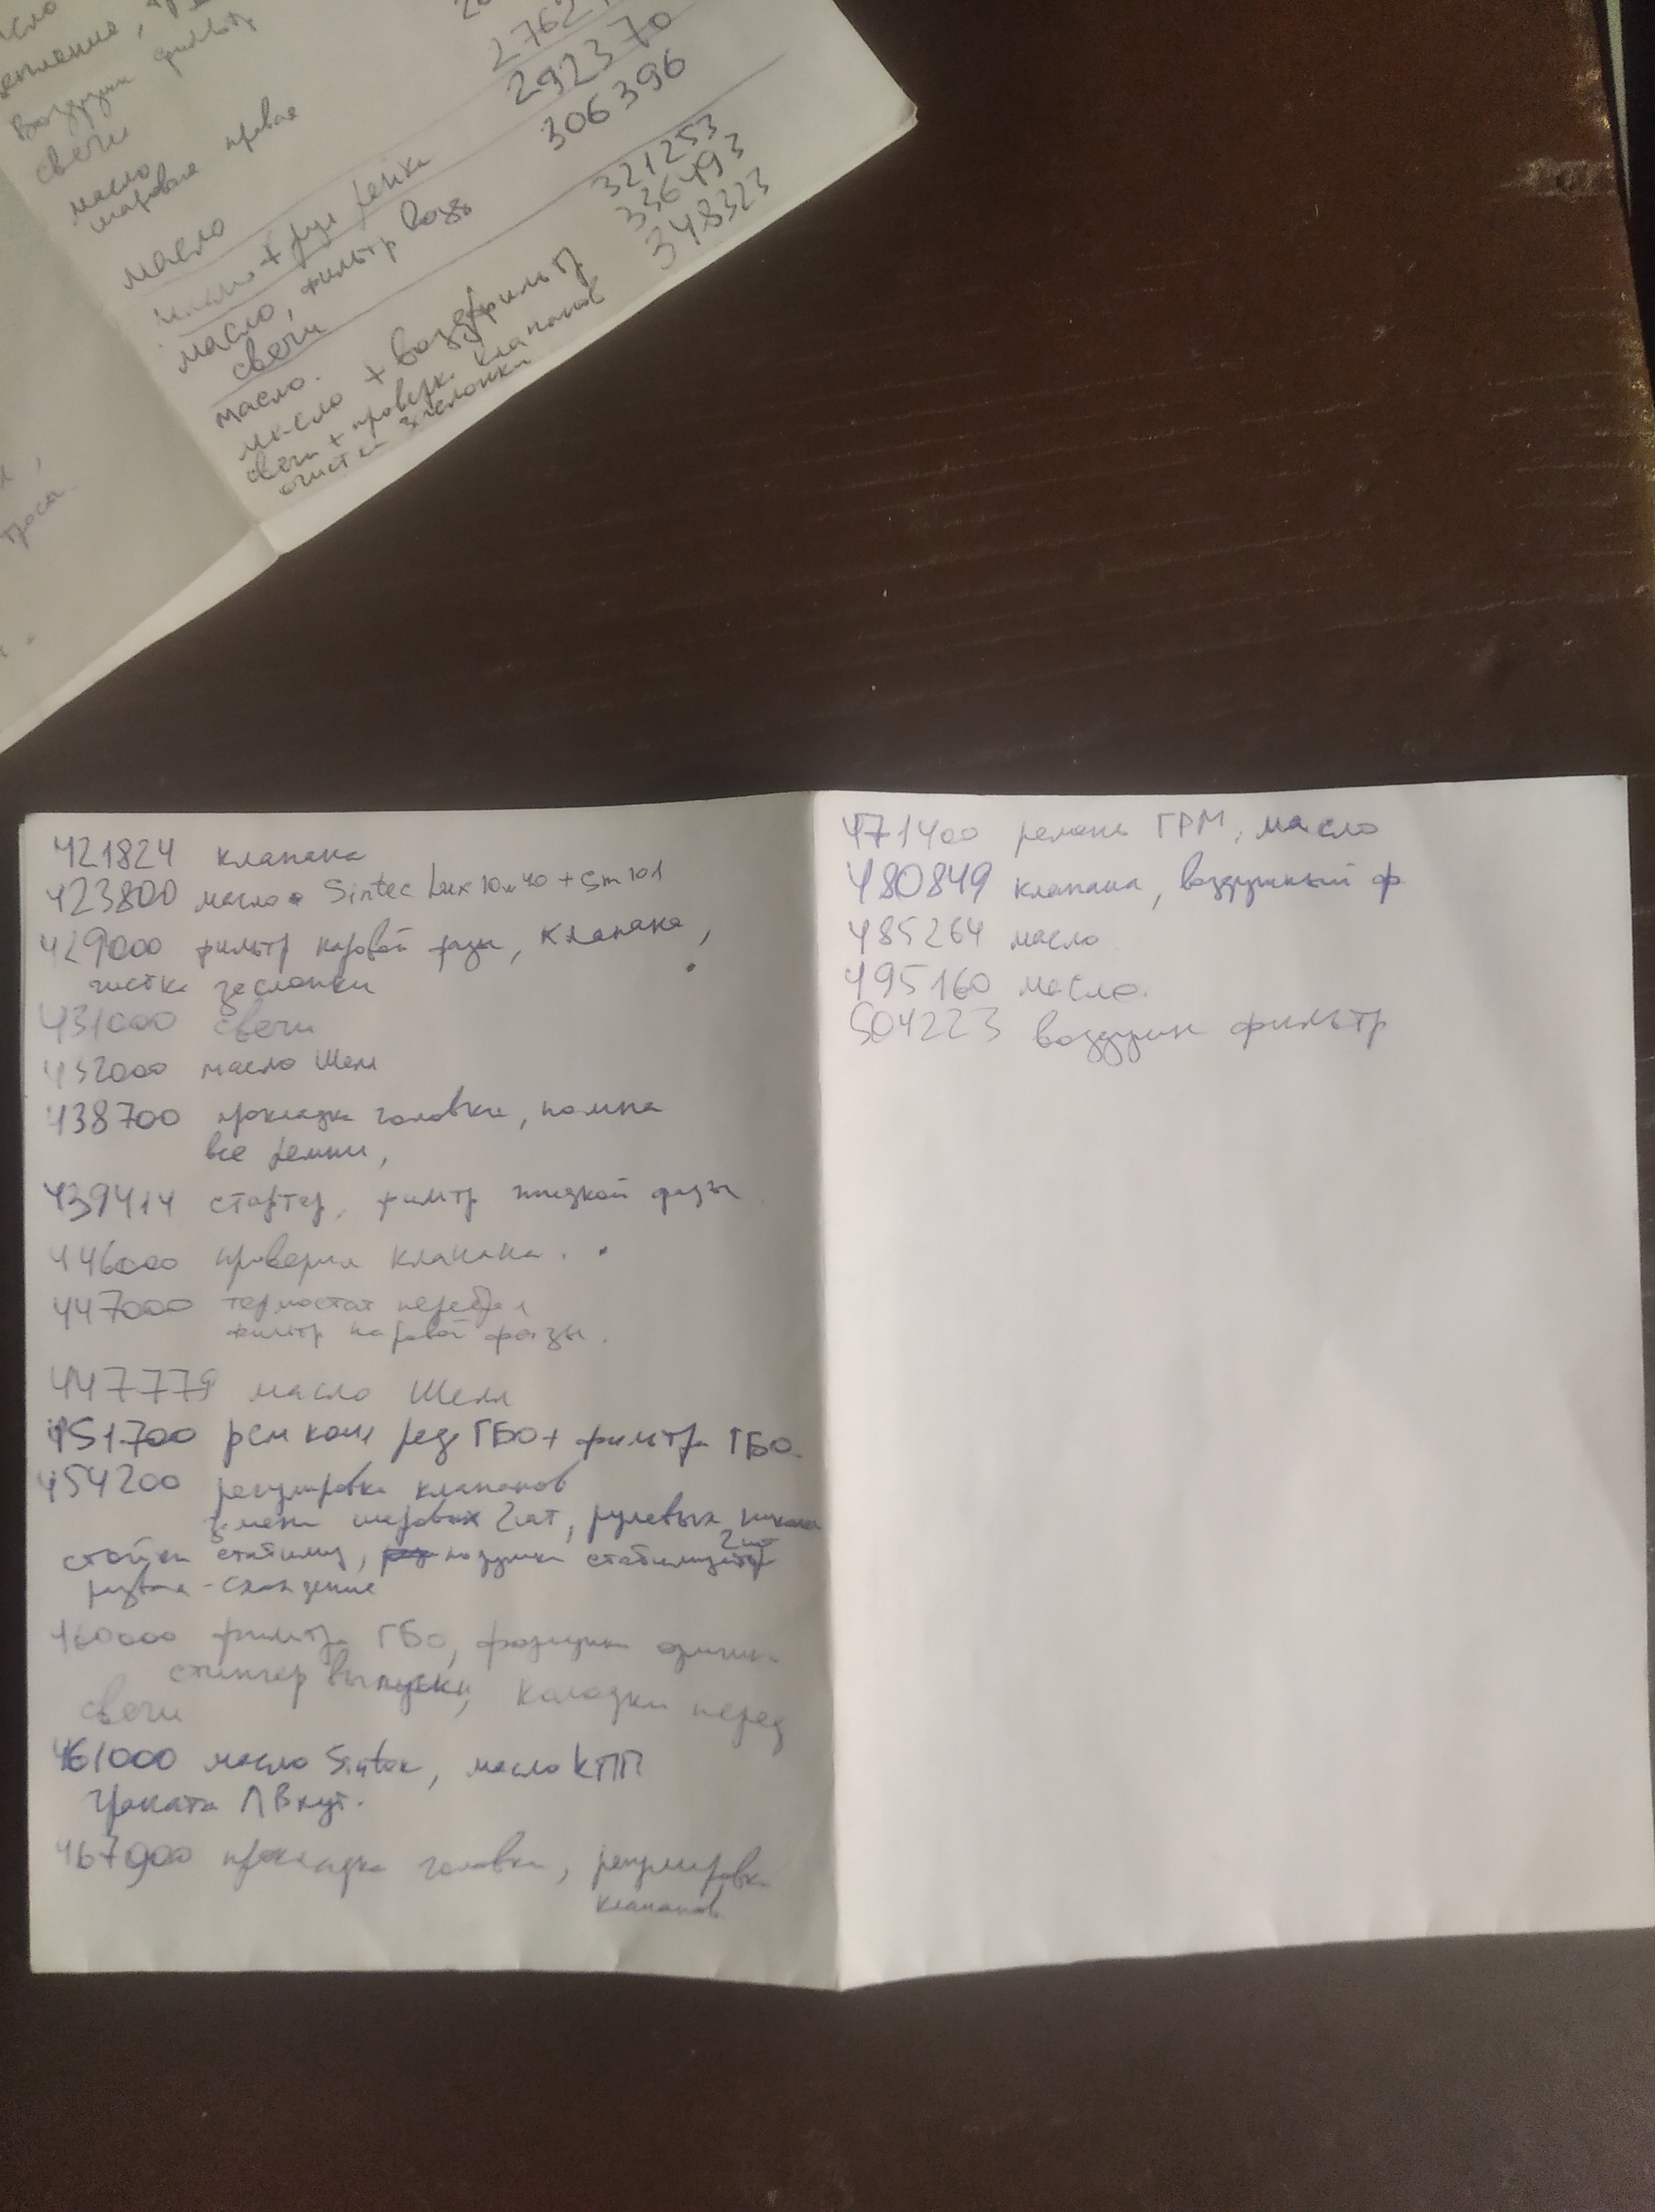 масло
Воздушн фильтр
свечи
масло
шаровые правая
масло 2762
масло + рул рейка 292370
масло, фильтр возд 306396
свечи
масло. 321253
масло + возд фильтр 336493
свечи + проверка клапанов 348323
очистка заслонки
троса.
421824 клапана
423800 масло Sintec Lux 10w40 + Sm101
429000 фильтр паровой фазы, клапана,
чистка заслонки
431000 свечи
432000 масло Шелл
438700 прокладка головки, помпа
все ремни,
439414 стартер, фильтр жидкой фазы
446000 проверил клапана.
447000 термостат перебрал
фильтр паровой фазы.
447779 масло Шелл
451700 рем ком ред ГБО + фильтра ГБО.
454200 регулировка клапанов
замена шаровых 2 шт, рулевых након
стойки стабилиз, подушки стабилизатор 2 шт
развал-схождение
460000 фильтра ГБО,
стингер выпуски, колодки перед
свечи
461000 масло Sintec, масло КПП
Граната Л Внут.
467900 прокладка головки, регулировка
клапанов
471400 ремень ГРМ, масло
480849 клапана, воздушный ф
485264 масло
495160 масло.
504223 воздушн фильтр